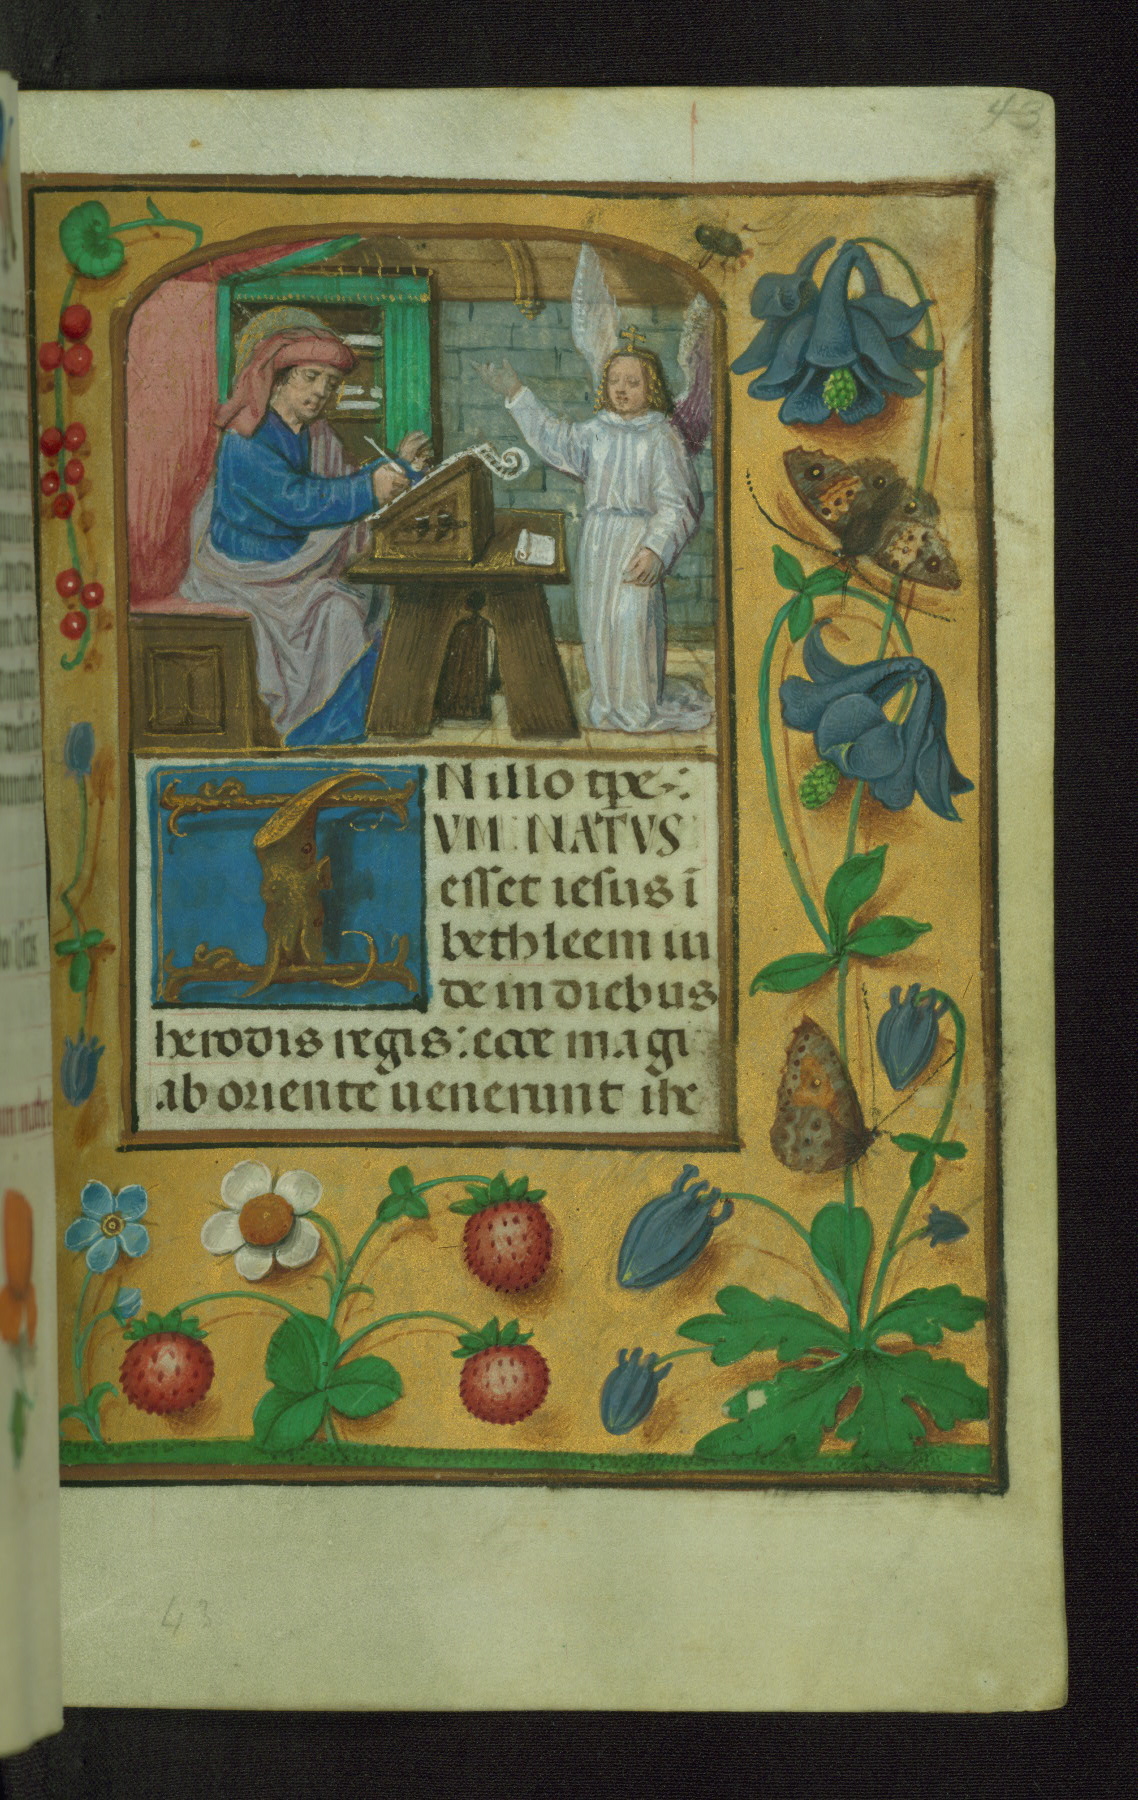 43
IN illo tp̄e:
CUM NATUS
esset iesus ī
bethleem iu
de in diebus
herodis regis: ecce magi
ab oriente uenerunt ihe
43